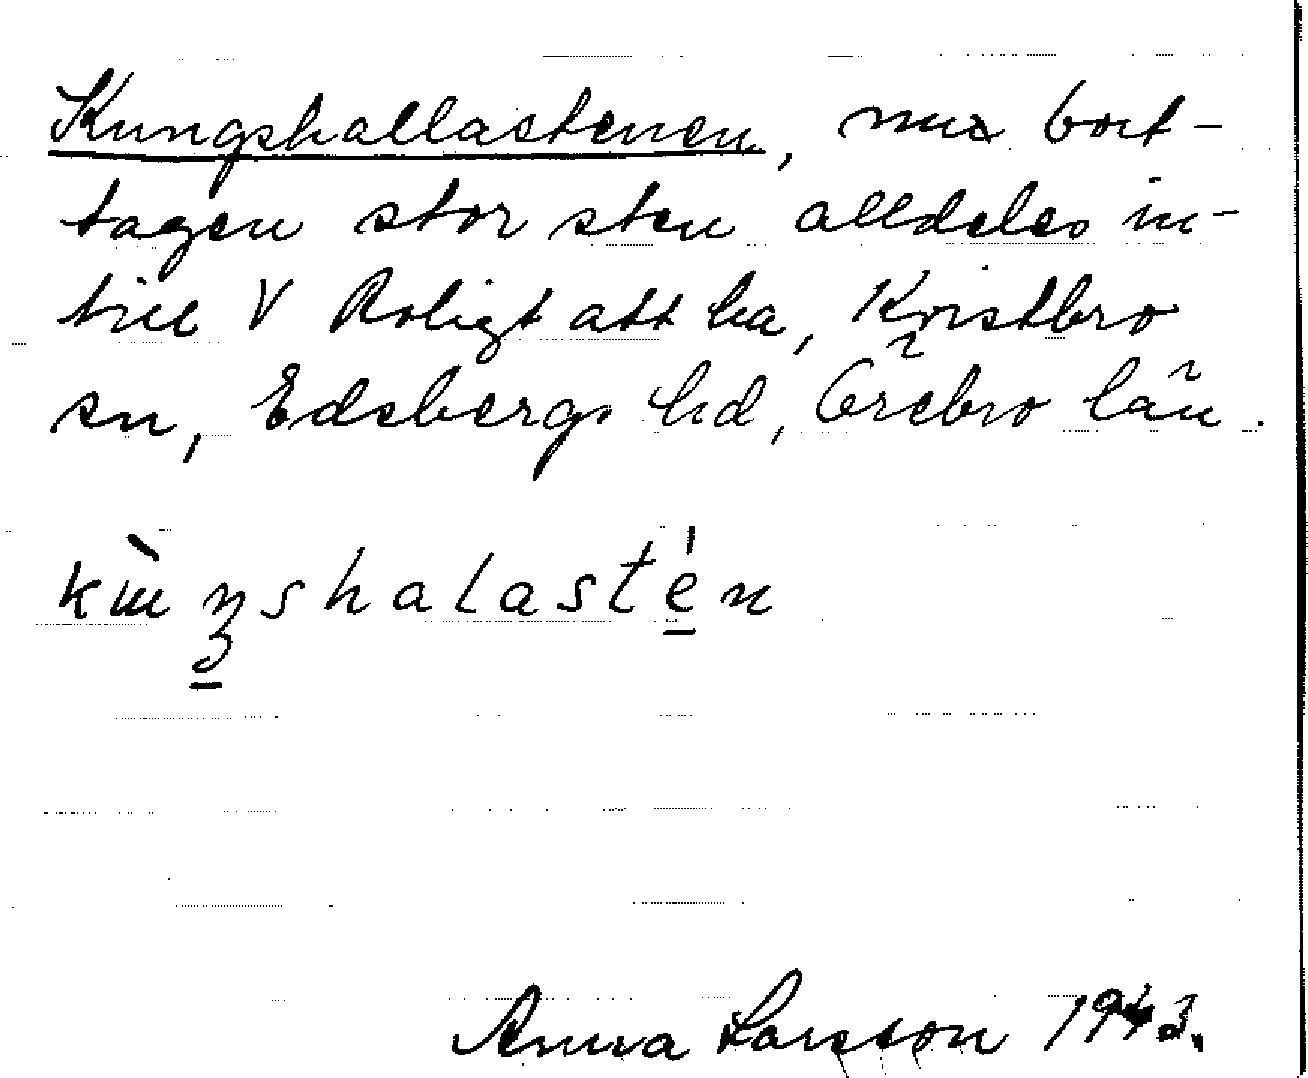 Kungshallastenen, nua bort-
tagen stor sten alldeles in-
till V Roligt att ha, Kvistbro
sn, Edsbergs hd, Örebro län.
Anna Larsson 1943.